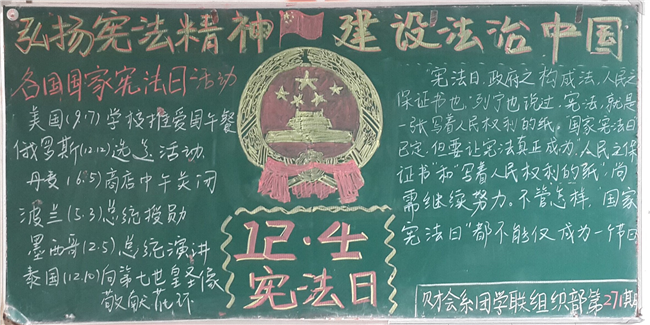 弘扬宪法精神 建设法治中国
各国国家宪法日活动
美国(9.17)学校推爱国午餐
俄罗斯(12.12)选美活动
丹麦(6.5)商店中午关闭
波兰(5.3)总统授勋
墨西哥(2.5)总统演讲
泰国(12.10)向第七世皇圣像
敬献花环
12·4
宪法日
"宪法日,政府之构成法,人民之
保证书也"列宁也说过,"宪法,就是
一张写着人民权利的纸。"国家宪法日
已定,但要让宪法真正成为"人民之保
证书"和"写着人民权利的纸",尚
需继续努力。不管怎样,"国家
宪法日"都不能仅成为一个节日
财会系团学联组织部第27期